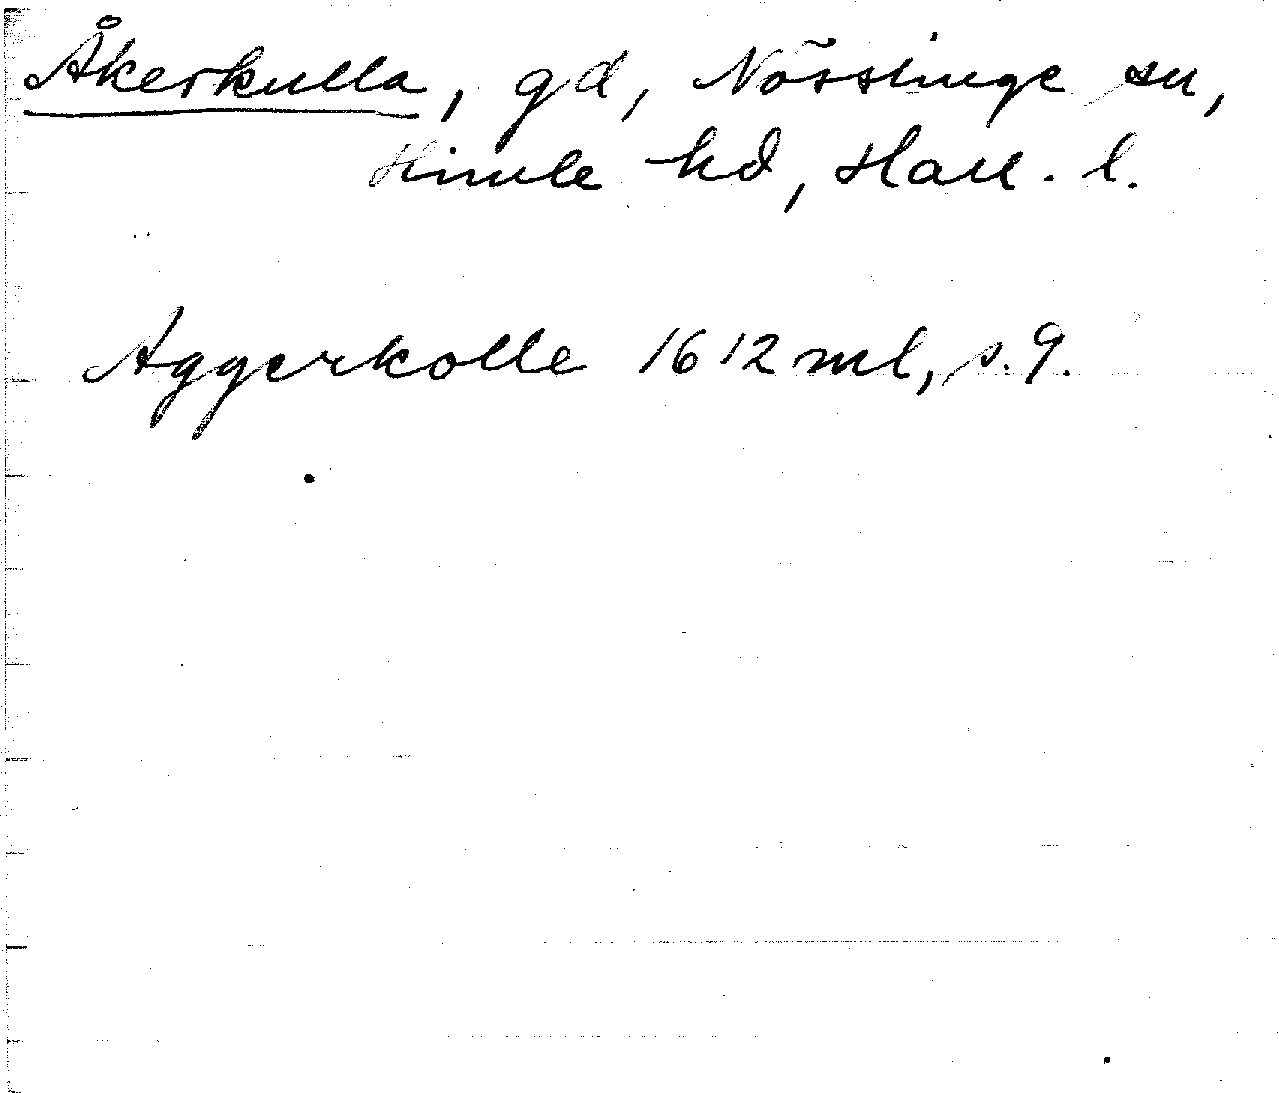 Åkerkulla, gd, Nösslinge sn,
Himle hd, Hall. l.
Aggerkolle 1612 ml, s. 9.